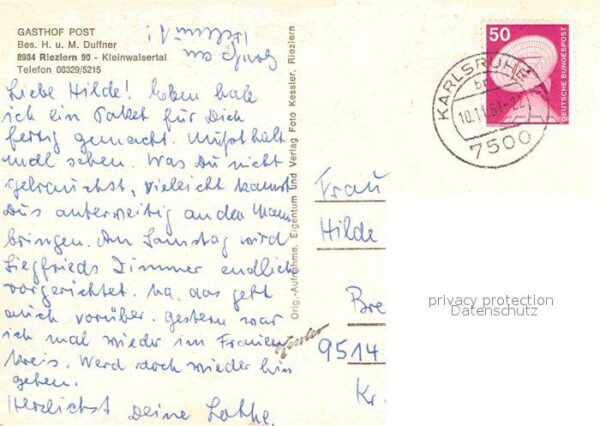 GASTHOF POST
Bes. H. u. M. Duffner
8984 Riezlern 99 - Kleinwalsertal
Telefon 08329/5215
Liebe Hilde! Soeben hab
ich ein Paket für Dich
fertig gemacht. Mußt halt
mal sehen. Was Du nicht
gebrauchst, vielleicht kannst
Du's anderweitig an den Mann
bringen. Am Samstag wird
Siegfrieds Zimmer endlich
vorgerichtet. Na, das geht
auch vorüber. Gestern war
ich mal wieder im Frauen
kreis. Werd doch wieder hin
gehen.
Herzlichst Deine Lothe.
Gruß an
Orig.-Aufnahme, Eigentum und Verlag Foto Kessler, Riezlern
Kessler
50
DEUTSCHE BUNDESPOST
KARLSRUHE
7500
Frau
Hilde
Bre
9514
Kr.
privacy protection
Datenschutz